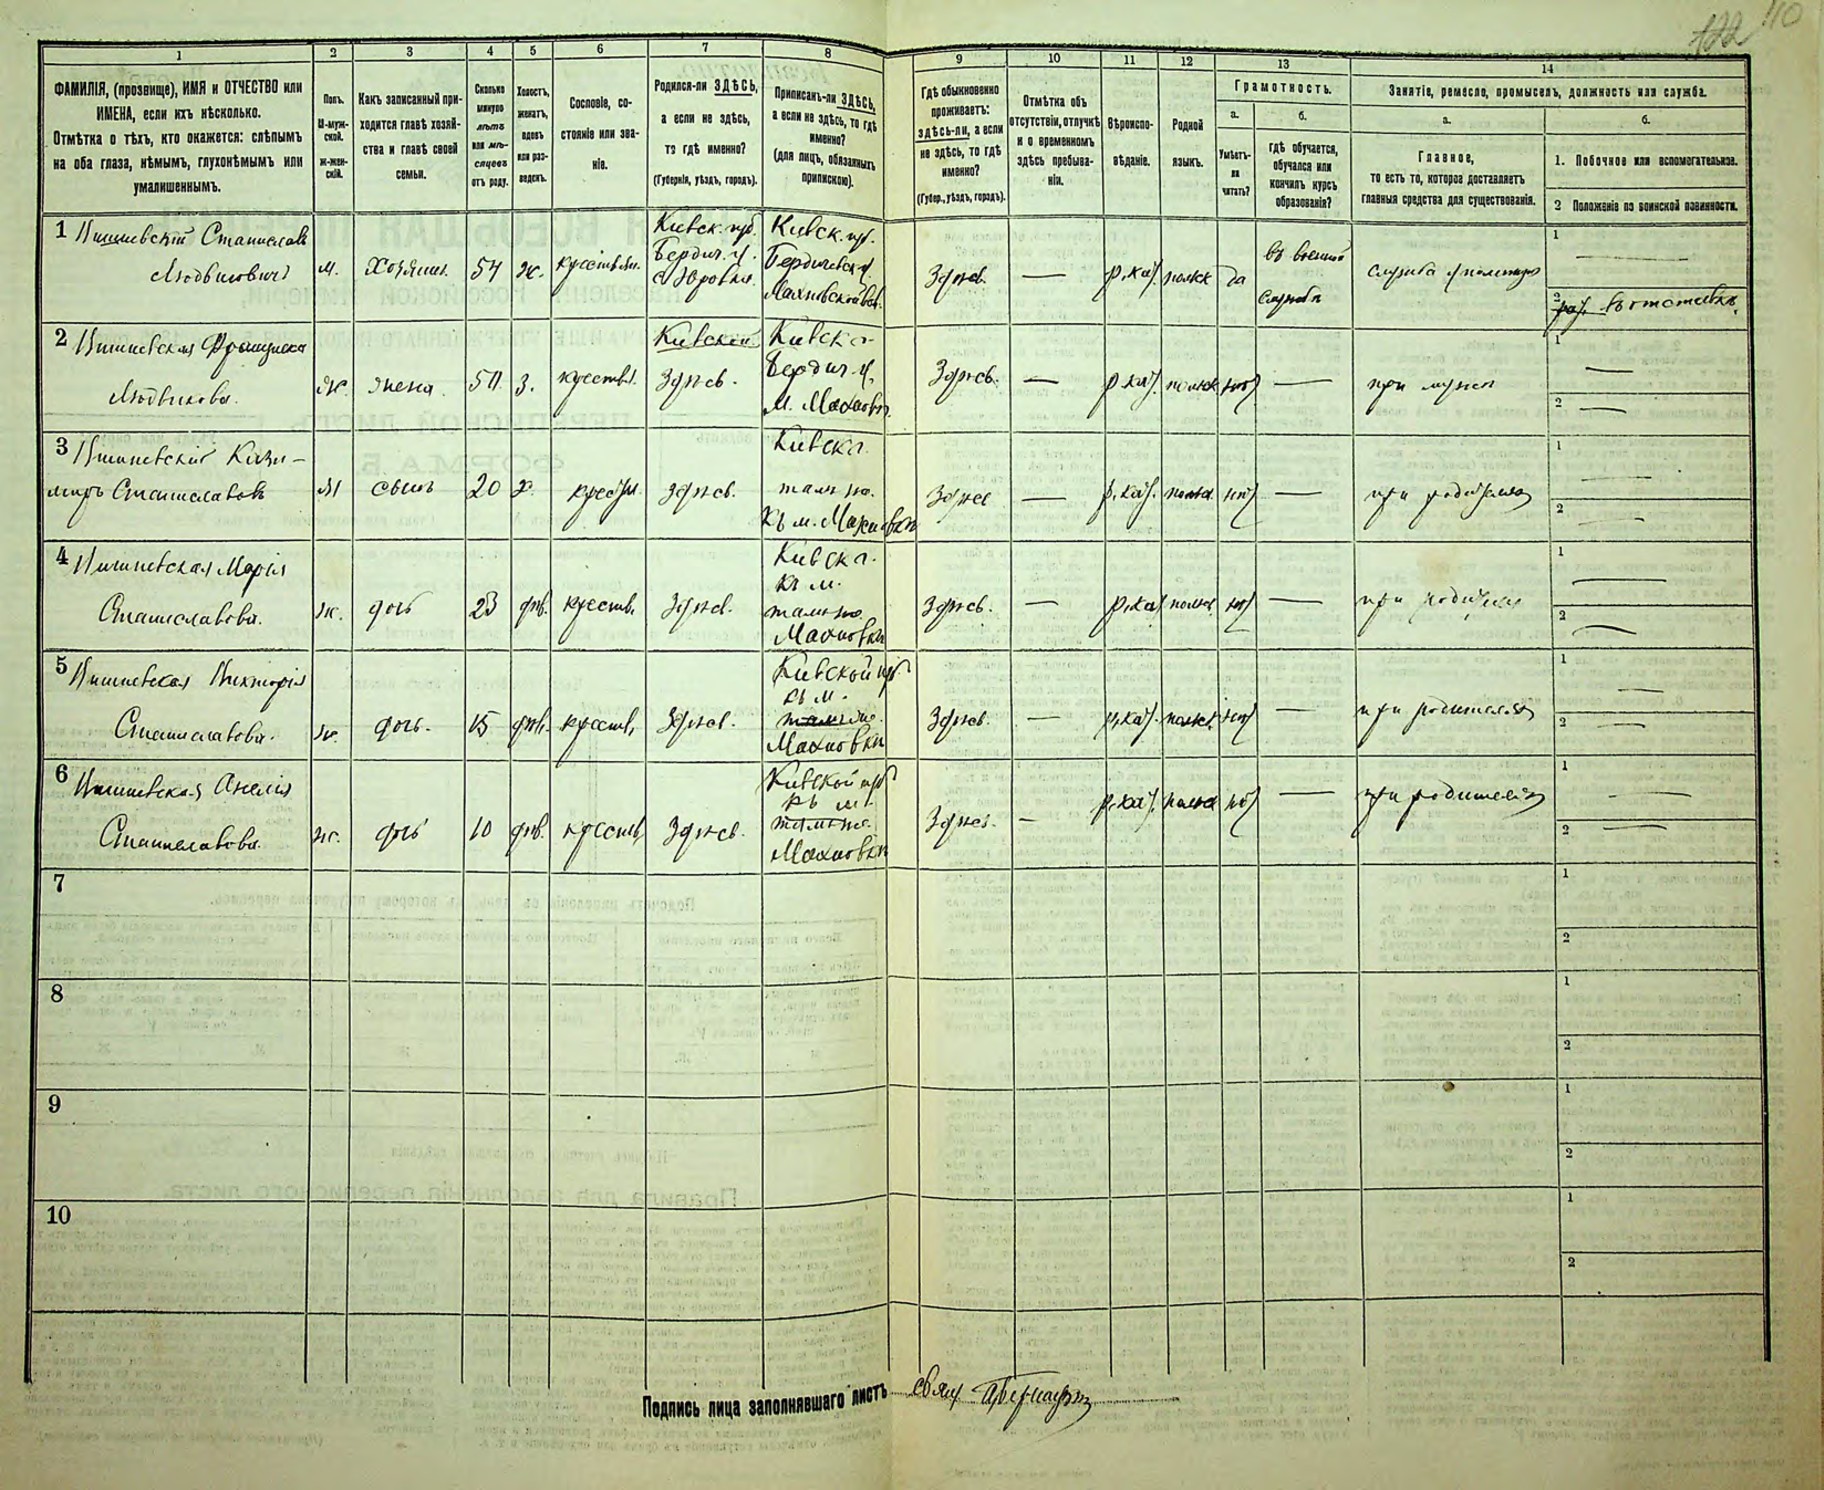 110
122
1
2
3
4
5
6
7
8
9
10
11
12
13
14
ФАМИЛІЯ, (прозвище), ИМЯ и ОТЧЕСТВО или
ИМЕНА, если ихъ нѣсколько.
Отмѣтка о тѣхъ, кто окажется: слѣпымъ
на оба глаза, нѣмымъ, глухонѣмымъ или
умалишеннымъ.
Полъ.
М-муж-
ской.
Ж-жен-
скій.
Какъ записанный при-
ходится главѣ хозяй-
ства и главѣ своей
семьи.
Сколько
минуло
лѣтъ
или мѣ-
сяцевъ
отъ роду.
Холостъ,
женатъ,
вдовъ
или раз-
веденъ.
Сословіе, со-
стояніе или зва-
ніе.
Родился-ли ЗДѢСЬ,
а если не здѣсь,
то гдѣ именно?
(Губернія, уѣздъ, городъ).
Приписанъ-ли ЗДѢСЬ,
а если не здѣсь, то гдѣ
именно?
(для лицъ, обязанныхъ
припискою).
Гдѣ обыкновенно
проживаетъ:
здѣсь-ли, а если
не здѣсь, то гдѣ
именно?
(Губер., уѣздъ, городъ).
Отмѣтка объ
отсутствіи, отлучкѣ
и о временномъ
здѣсь пребыва-
ніи.
Вѣроиспо-
вѣданіе.
Родной
языкъ.
Грамотность.
а.
Умѣетъ-
ли
читать?
б.
Гдѣ обучается,
обучался или
кончилъ курсъ
образованія?
Занятіе, ремесло, промыселъ, должность или служба.
а.
Главное,
то есть то, которое доставляетъ
главныя средства для существованія.
б.
1. Побочное или вспомогательное.
2 Положеніе по воинской повинности.
1 Вишневскій Станиславъ
Людвиковичъ
м. хозяинъ. 54 ж. крестьян.
Кіевск. губ.
Бердич. у.
с Юровка.
Кіевск. губ.
Бердичевск. у.
Махновской вол.
Здѣсь. — р.кат. польск да
въ военной
службѣ
1 —
2 въ отставкѣ.
2 Вишневская
Людвикова.
ж. жена. 50. з. крестьян.
Кіевской
Здѣсь.
Кіевска
Бердич. у.
м. Махновки
Здѣсь. — р.кат. польск нѣт —
при мужѣ
1 —
2 —
3 Вишневскій Кази-
міръ Станиславовъ
м сынъ 20 х. крестьян. здѣсь.
Кіевска
там же.
къ м. Махновки
Здѣсь — р.кат. польск. нѣт —
при родителях
1 —
2 -
4 Вишневская Марія
Станиславова.
ж. дочь 23 дѣв. крестьян. Здѣсь.
Кіевска.
къ м.
там же.
Махновки
Здѣсь. — р.кат. польск. нѣт —
при родителях
1 —
2 —
5 Вишневская Викторія
Станиславова.
ж. дочь. 15 дѣв. крестьян. Здѣсь.
Кіевской губ.
къ м.
там же.
Махновки
Здѣсь. — р.кат. польск. нѣт —
при родителях
1 —
2 —
6 Вишневская Анелія
Станиславова.
ж. дочь 10 дѣв. крестьян Здѣсь.
Кіевской губ
къ м.
там же.
Махновки
Здѣсь. — р.кат. польск нѣт —
при родителях
1 —
2 —
7
1
2
8
1
2
9
1
2
10
1
2
Подпись лица заполнявшаго листъ свящ.